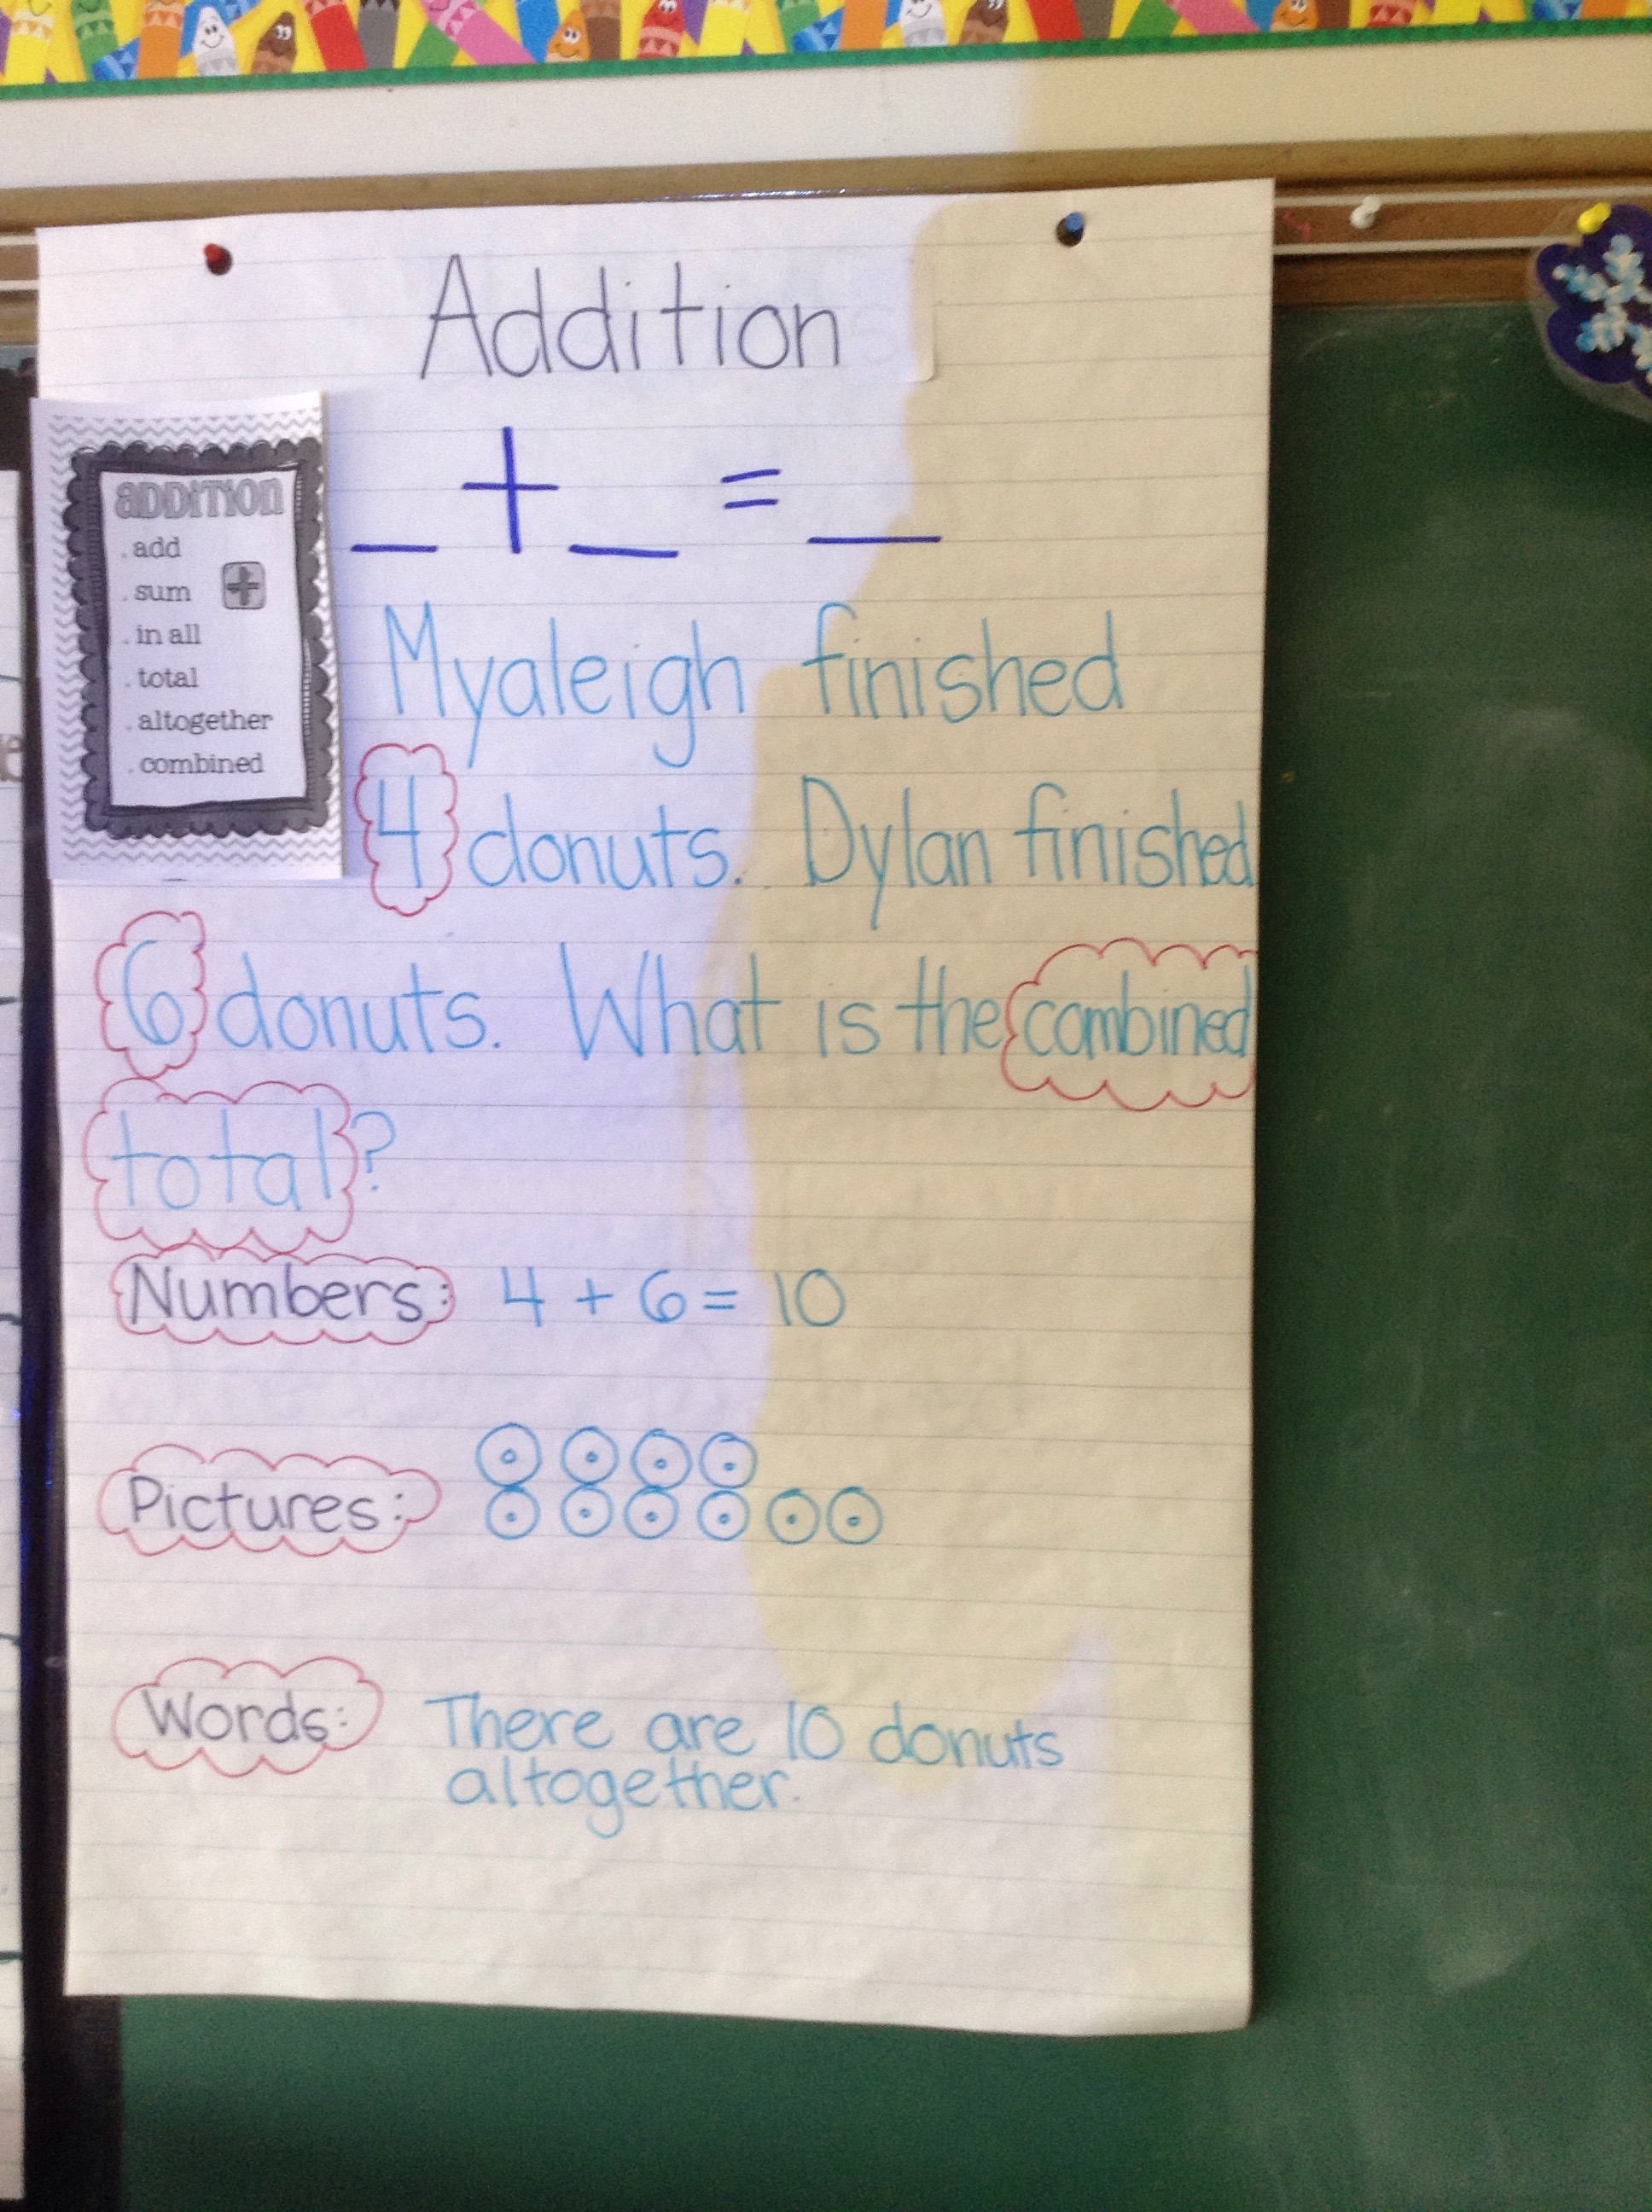 Addition
_ + _ = _
ADDITION
. add
. sum
. in all
. total
. altogether
. combined
Myaleigh finished
4 donuts. Dylan finished
6 donuts. What is the combined
total?
Numbers: 4 + 6 = 10
Pictures:
Words: There are 10 donuts
altogether.